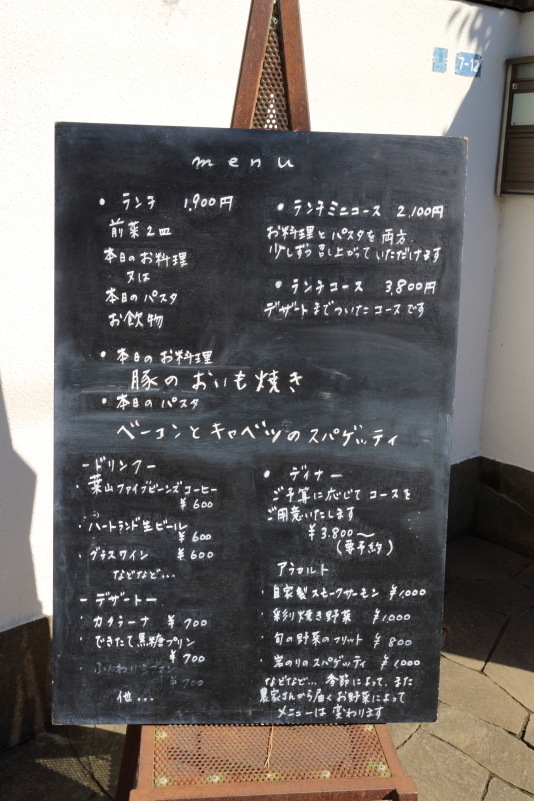 7-12
menu
・ランチ 1,900円
前菜2皿
本日のお料理
又は
本日のパスタ
お飲物
・ランチミニコース 2,100円
お料理とパスタを両方
少しずつ召し上がっていただけます
・ランチコース 3,800円
デザートまでついたコースです
・本日のお料理
豚のおいも焼き
・本日のパスタ
ベーコンとキャベツのスパゲッティ
ードリンクー
・葉山ファイブビーンズコーヒー
¥600
・ハートランド生ビール
¥600
・グラスワイン ¥600
などなど...
ーデザートー
・カタラーナ ¥700
・できたて黒糖プリン
¥700
・ふんわり
¥700
他...
・ディナー
ご予算に応じてコースを
ご用意いたします
¥3,800〜
(要予約)
アラカルト
・自家製スモークサーモン ¥1,000
・彩り焼き野菜 ¥1,000
・旬の野菜のフリット ¥800
・岩のりのスパゲッティ ¥1000
などなど... 季節によって、また
農家さんから届くお野菜によって
メニューは変わります